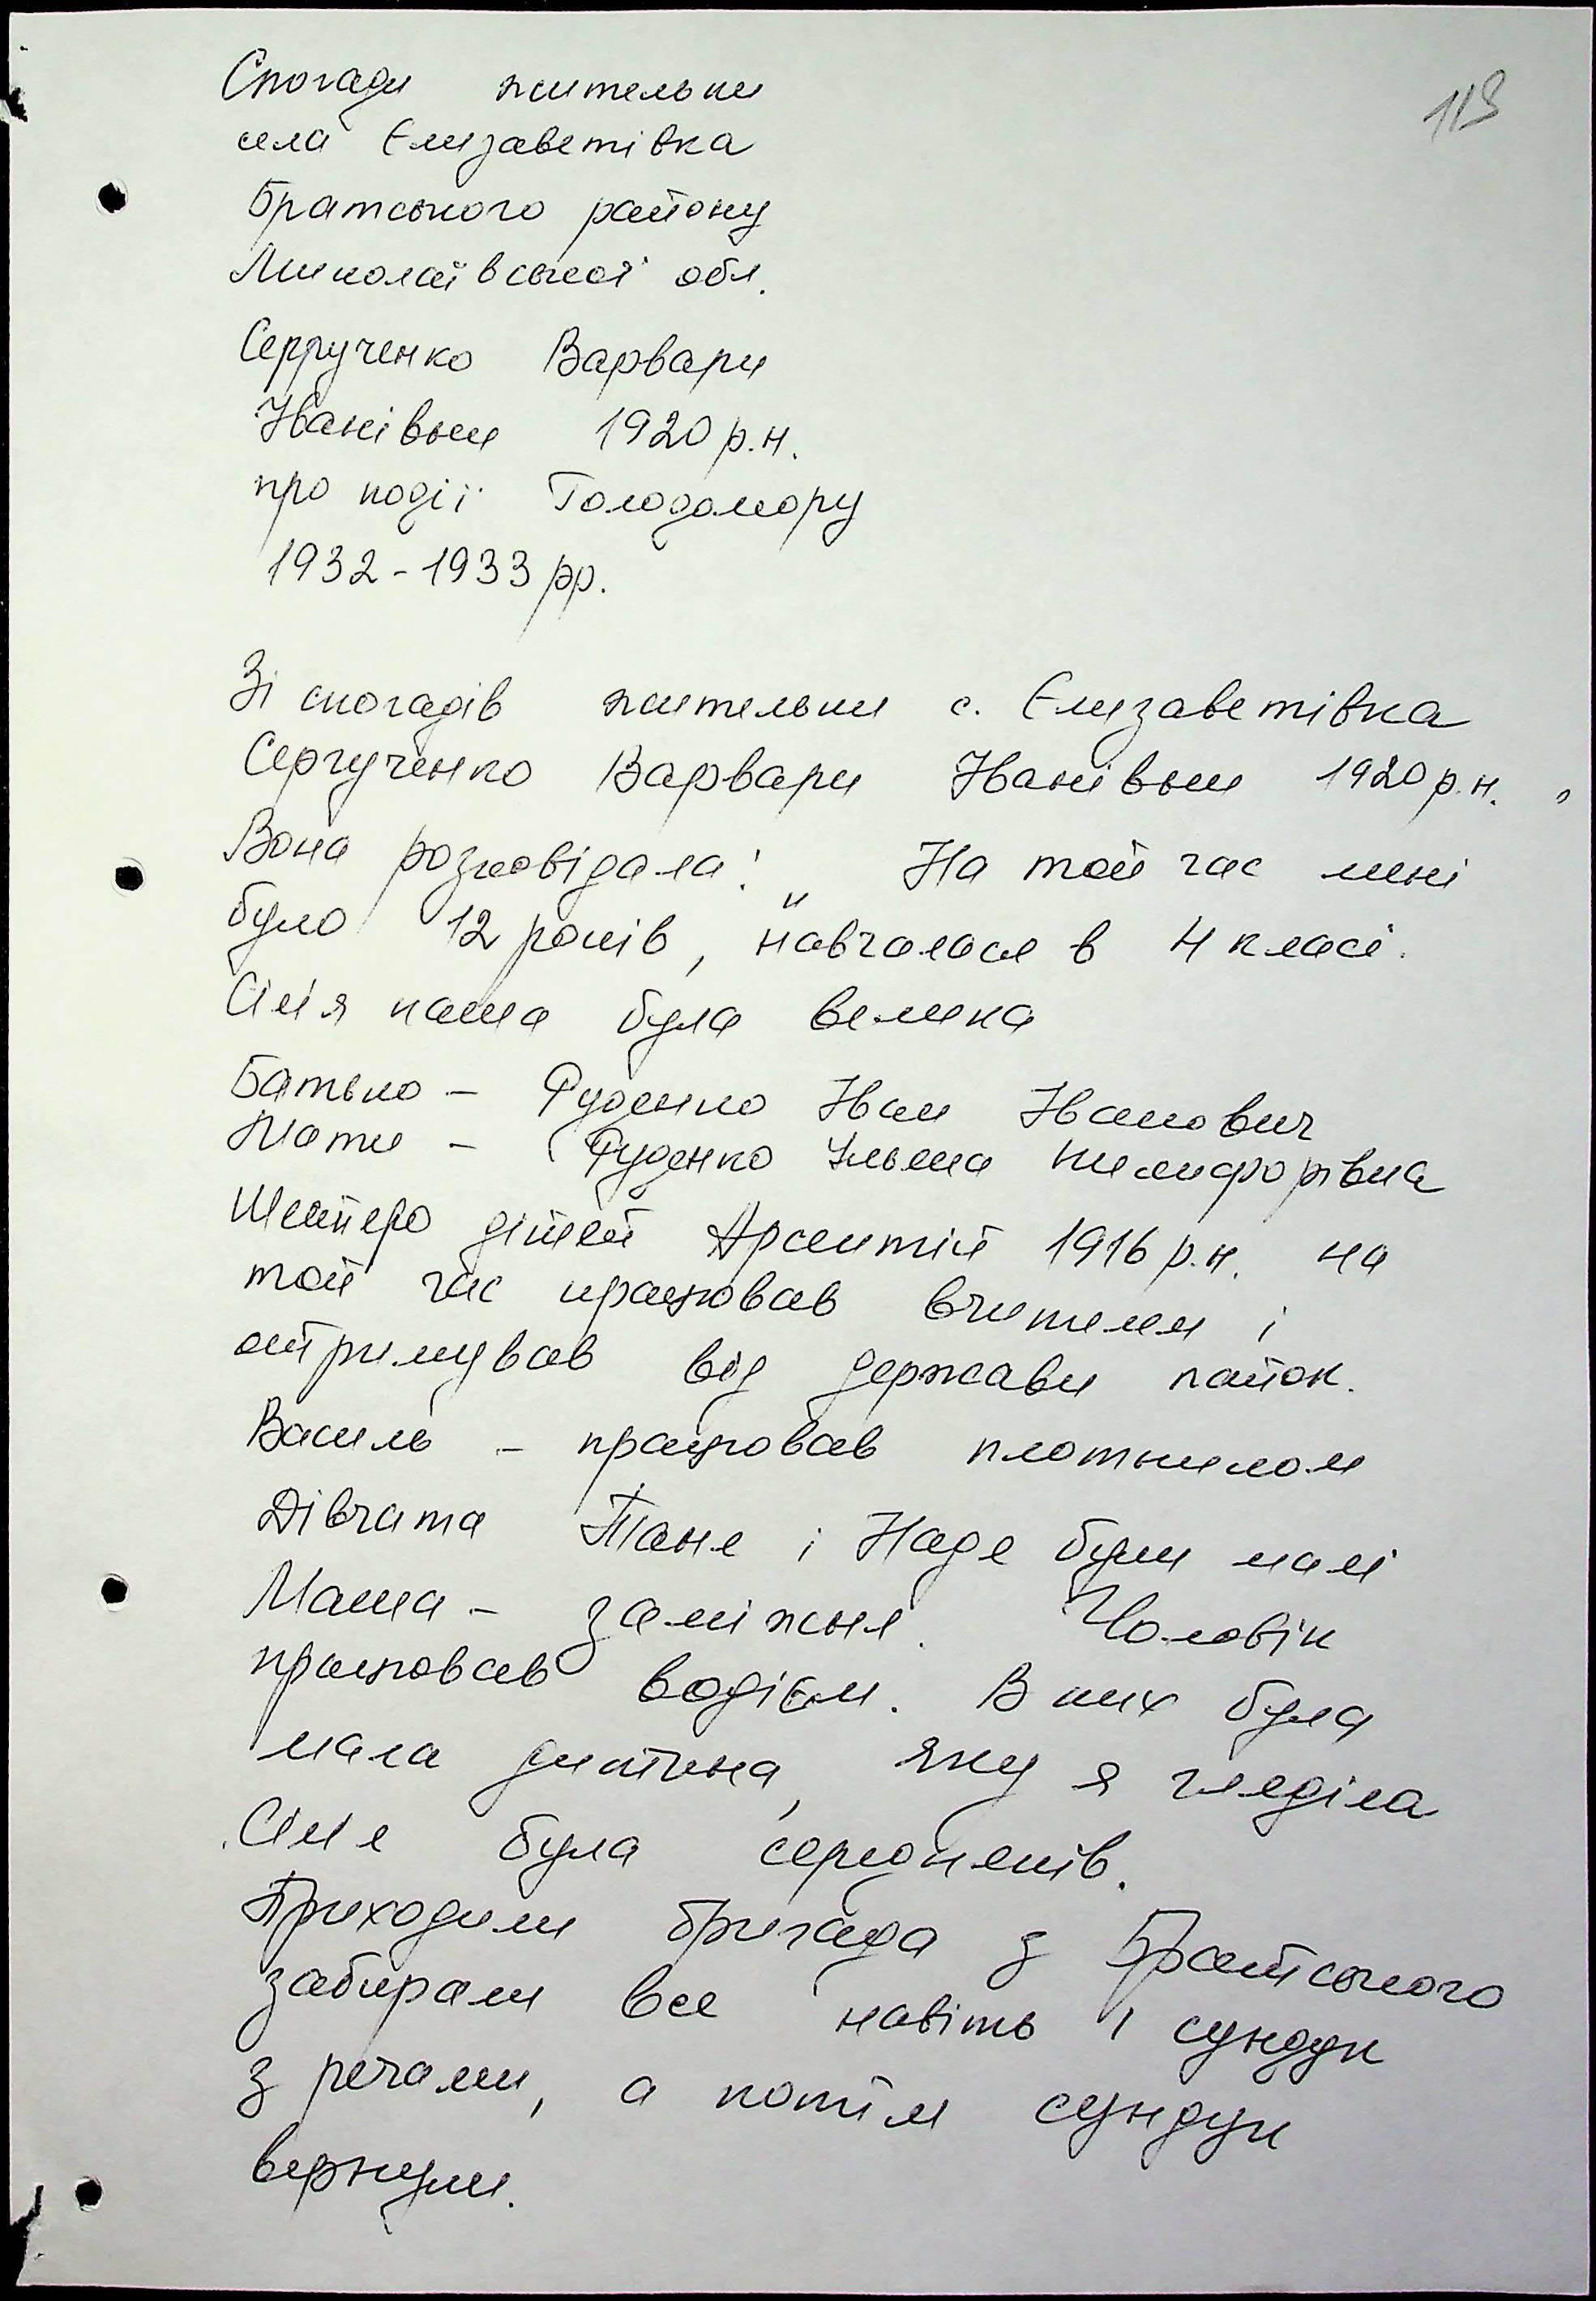 119
Спогади жительки
села Єлизаветівка
Братського району
Миколаївської обл.
Сергученко Варвари
Іванівни 1920 р.н.
про події Голодомору
1932-1933 рр.
Зі спогадів жительки с. Єлизаветівка
Сергученко Варвари Іванівни 1920 р.н.,
Вона розповідала: „ На той час мені
було 12 років, навчалася в 4 класі.
Сім'я наша була велика
Батько – Руденко Іван Іванович
Мати – Руденко Уляна Никифорівна
Шестеро дітей Арсентій 1916 р.н. на
той час працював вчителем і
отримував від держави пайок.
Василь – працював плотником
Дівчата Таня і Надя були малі
Маша – заміжня. Чоловік
працював водієм. В них була
мала дитина, яку я гляділа
Сім'я була середняків.
Приходили бригада з Братського
забирали все навіть і сундук
з речами, а потім сундук
вернули.